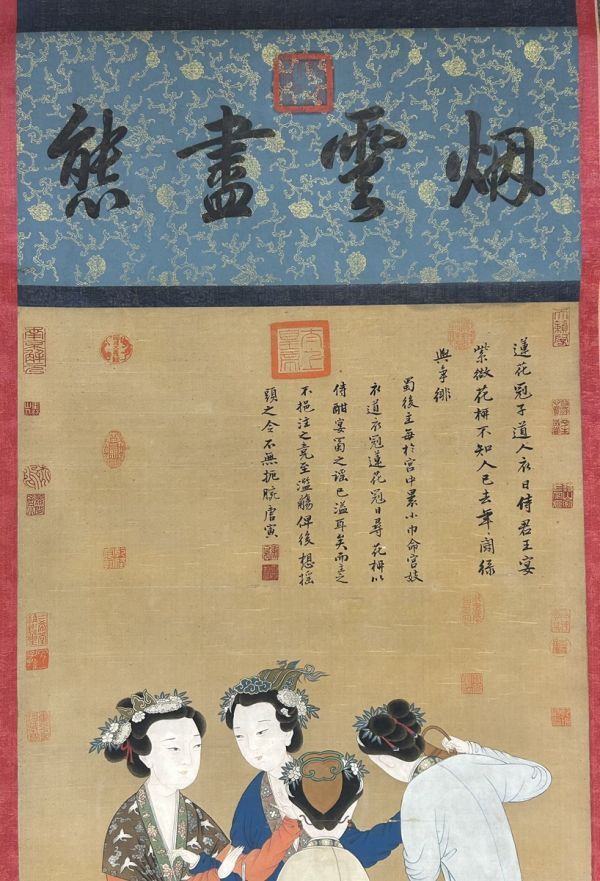 烟雲盡態
太上皇帝
蓮花冠子道人衣日侍君王宴
紫微花柳不知人已去年鬪綠
與爭緋
蜀後主每於宮中裹小巾命宮妓
衣道衣冠蓮花冠日尋花柳以
侍酣宴蜀之謠已溢耳矣而主之
不挹注之竟至濫觴俾後想搖
頭之令不無扼腕唐寅